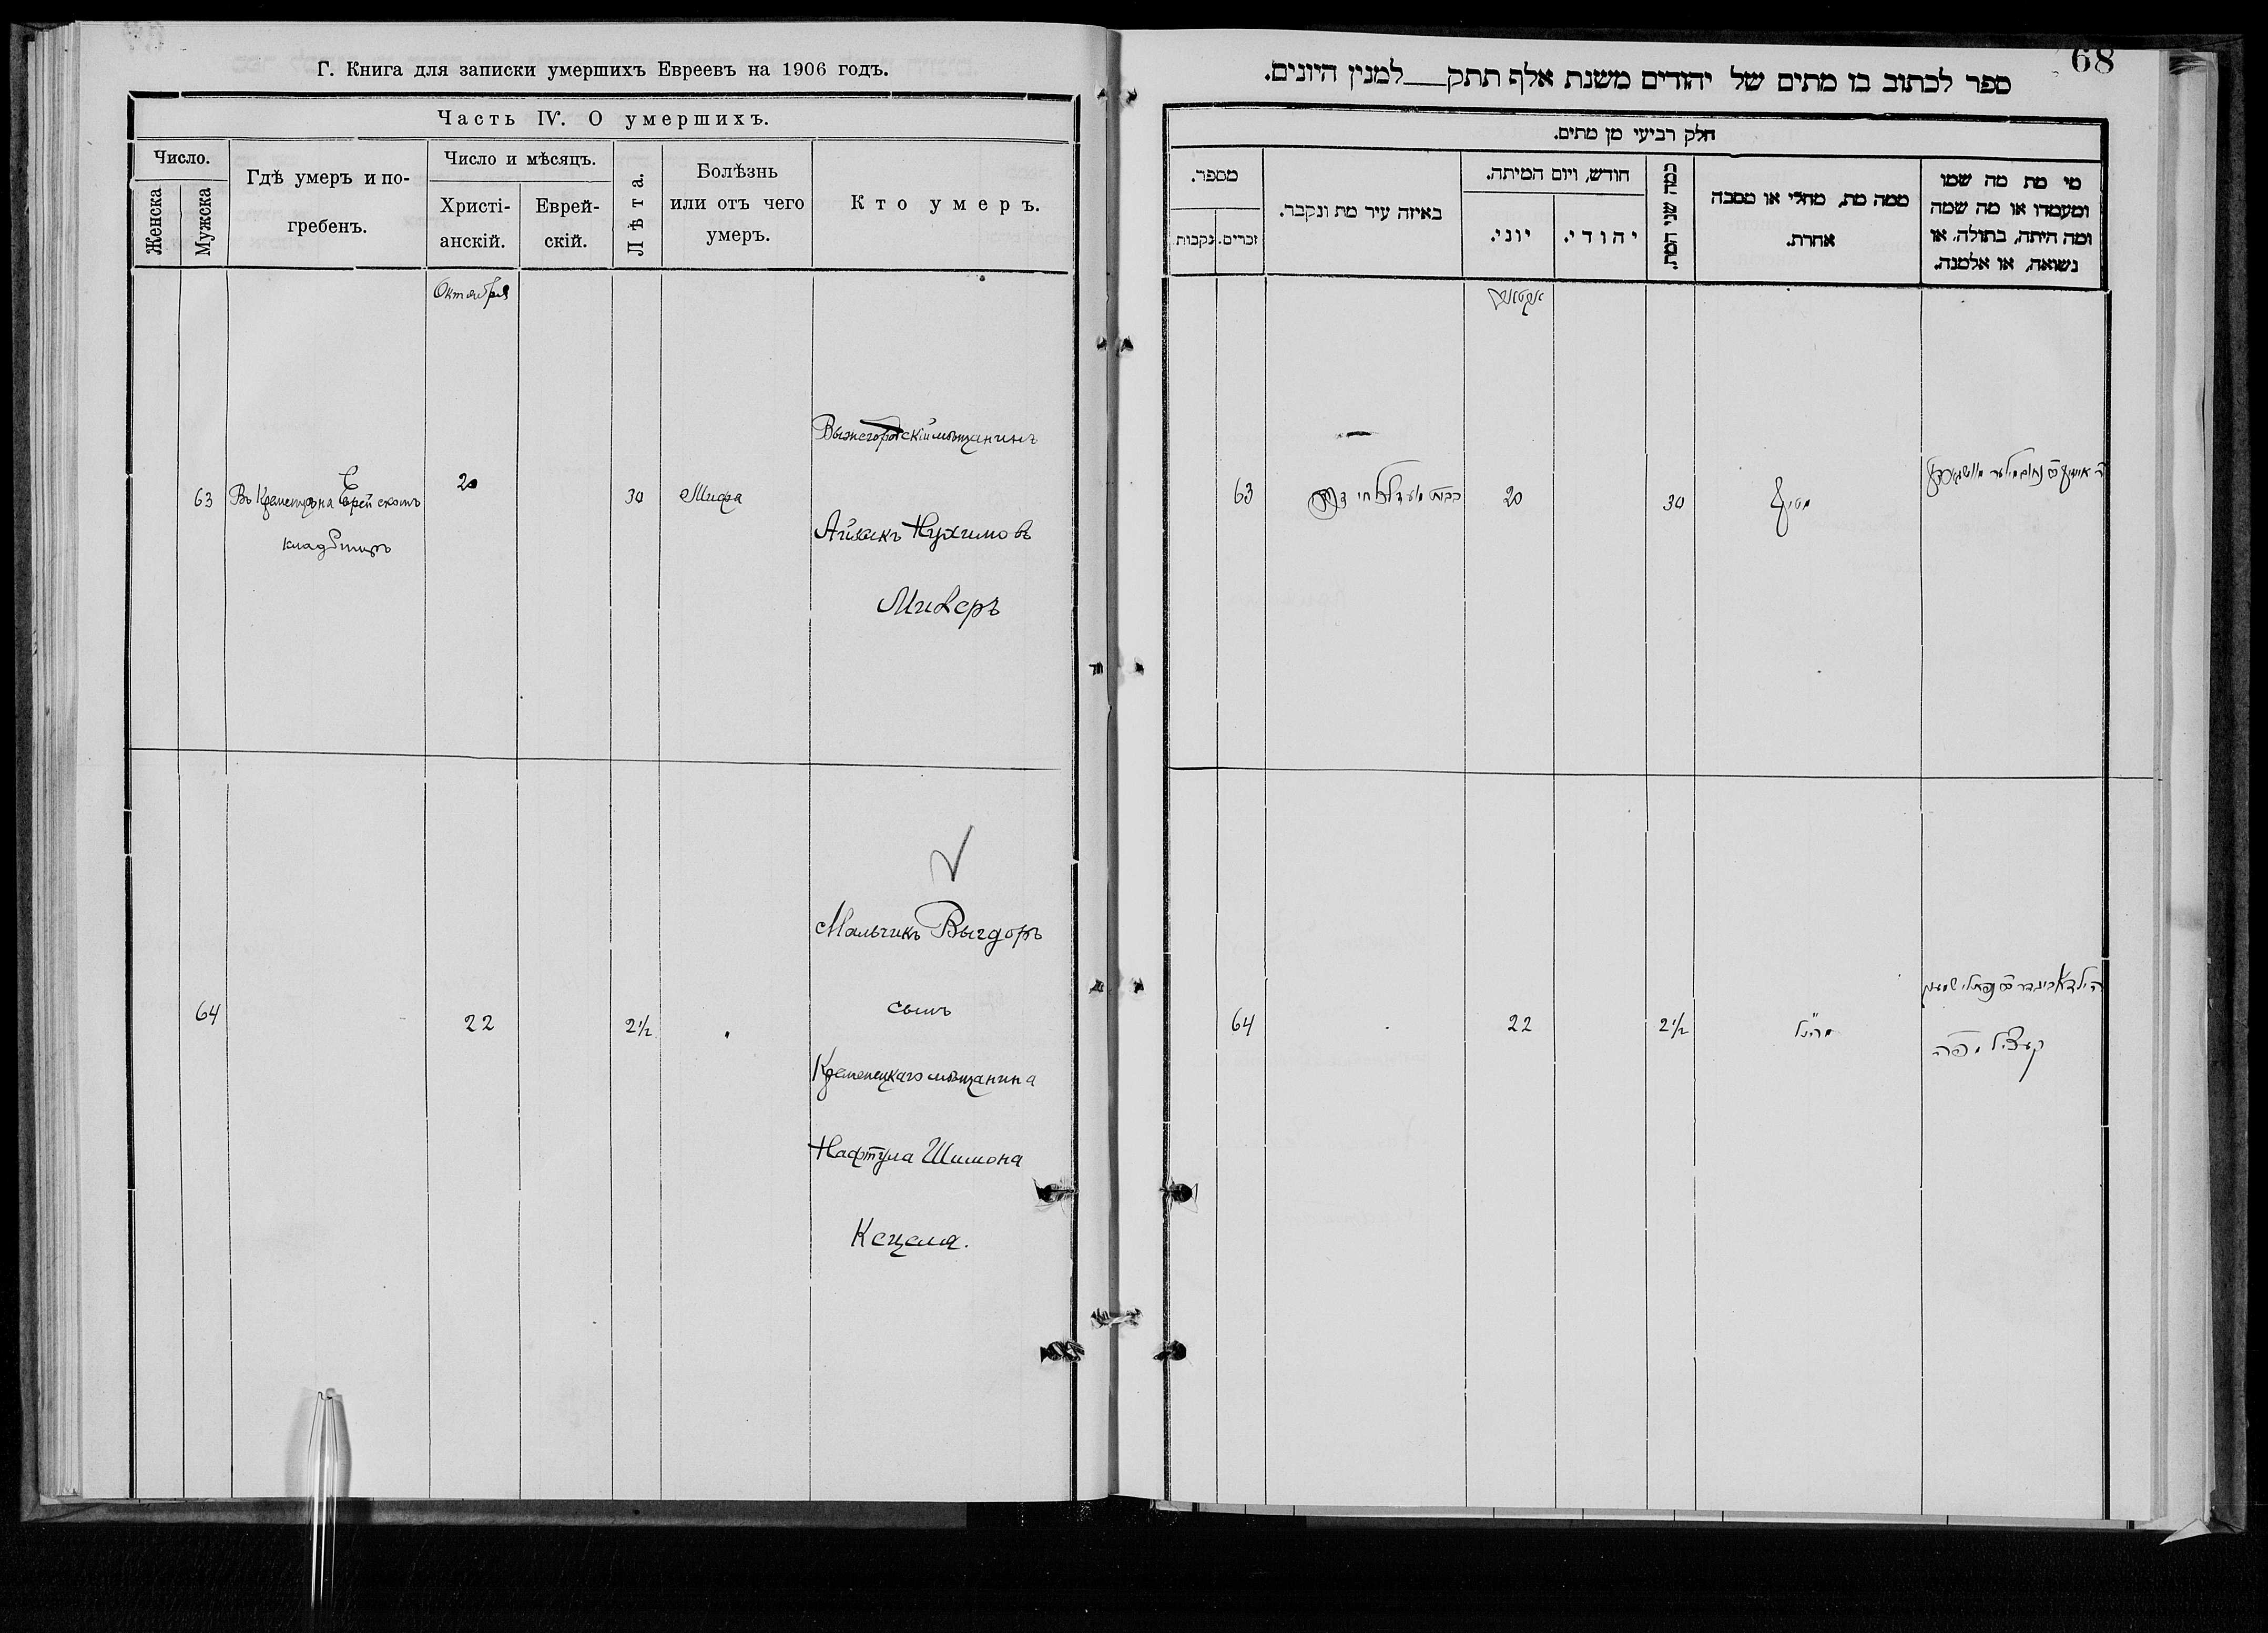 Г. Книга для записки умершихъ Евреевъ на 1906 годъ.
Часть IV. О умершихъ.
Число.
Женска
Мужска
Гдѣ умеръ и по-
гребенъ.
Число и мѣсяцъ.
Христі-
анскій.
Еврей-
скій.
Лѣта.
Болѣзнь
или отъ чего
умеръ.
Кто умеръ.
Октября
63
Въ Кременцѣ на Еврейскомъ
кладбищѣ
20
30
Выжегородскій мѣщанинъ
Айзикъ Нухимовъ
64
22
2½
Мальчикъ Выгдоръ
сынъ
Кременецкаго мѣщанина
Нафтула Шимона
Кецеля.
68
ספר לכתוב בו מתים של יהודים משנת אלף תתק ___ למנין היונים.
חלק רביעי מן מתים.
מספר.
נקבות
זכרים.
באיזה עיר מת ונקבר.
חודש, ויום המיתה.
יוני.
יהודי.
כמה שני המת.
ממה מת, מחלי או מסבה
אחרת.
מי מת מה שמו
ומעמדו או מה שמה
ומה היתה, בתולה, או
נשואה, או אלמנה.
63
20
30
64
22
2½